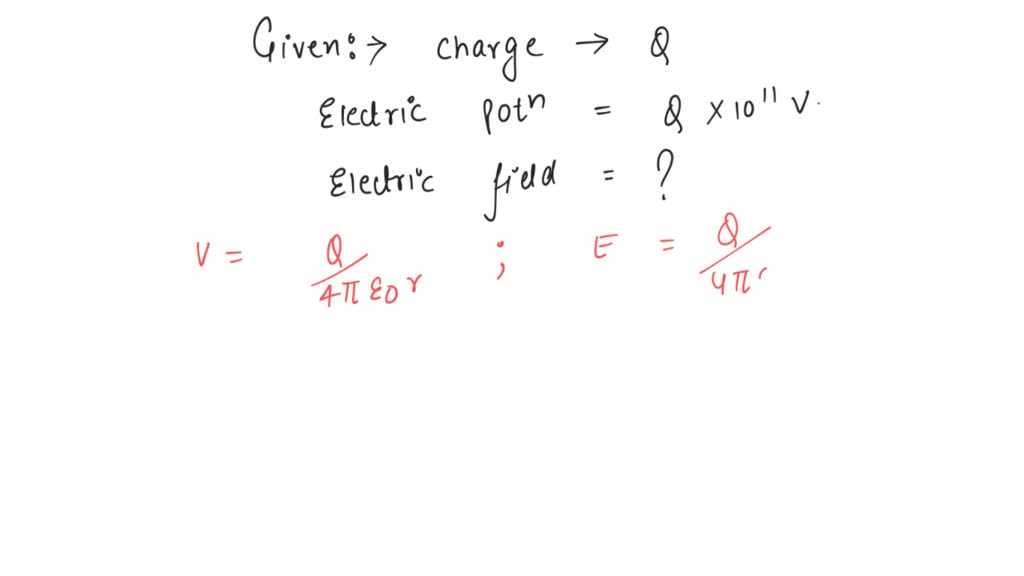 Given:→ charge → Q
Electric potⁿ = Q × 10¹¹ V.
Electric field = ?
V = Q/4π ε0 r ; E = Q/4π